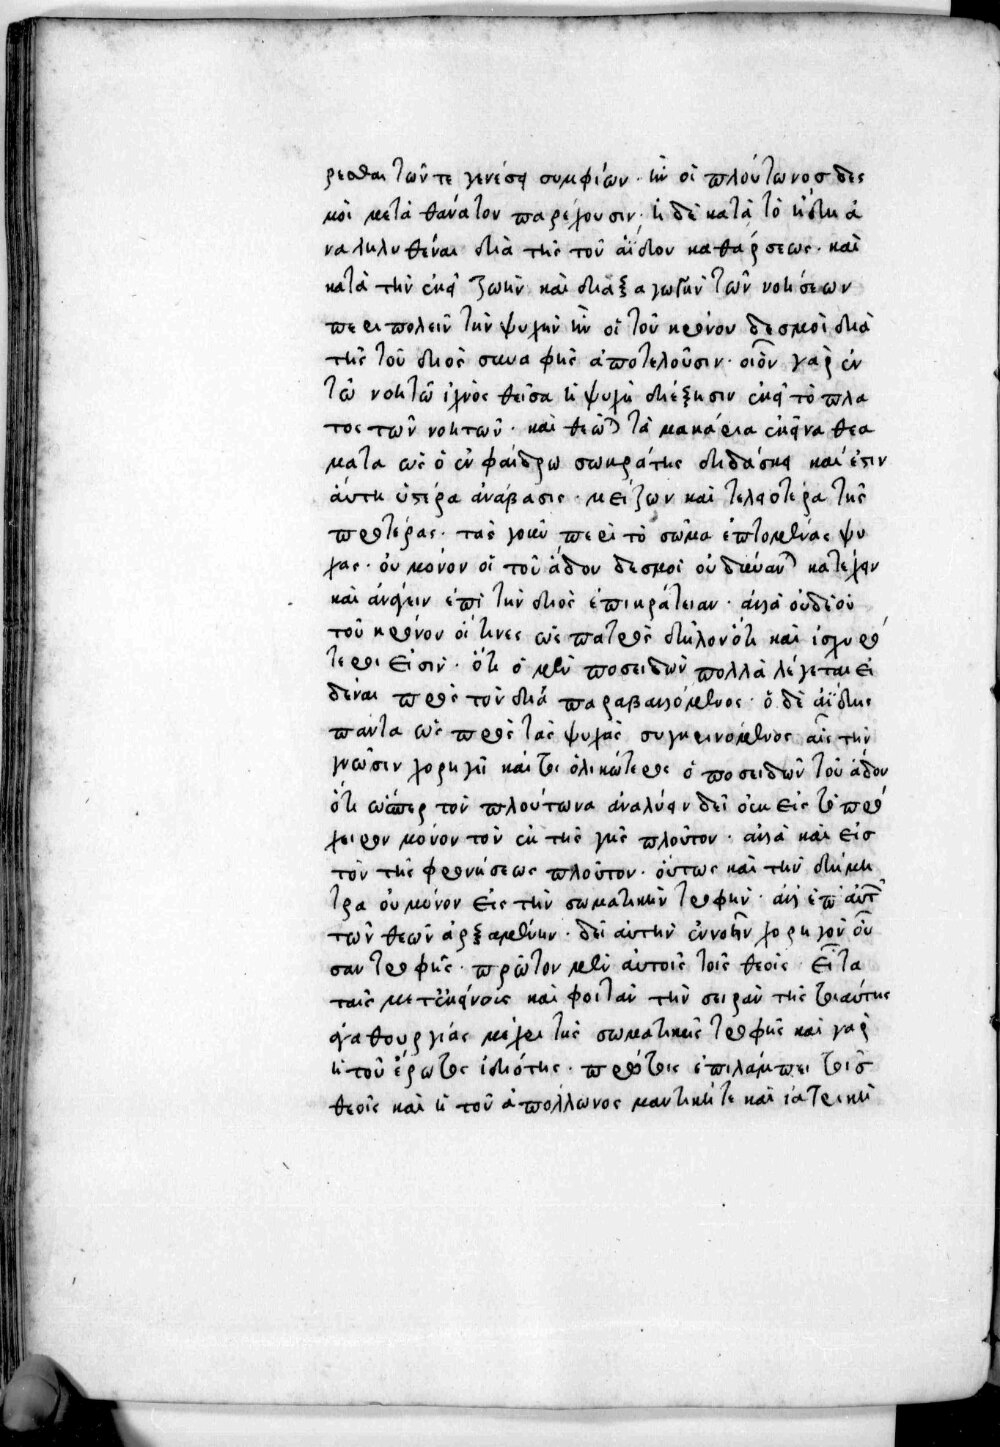 ρεσθαι τῶν τε γενέσει συμφύων· ἣν οἱ πλούτωνος δες
μοὶ μετὰ θάνατον παρέχουσιν· ἡ δὲ κατὰ τὸ ἤδη ἀ
ναληλυθέναι διὰ τῆς τοῦ ἀΐδου καθάρσεως· καὶ
κατὰ τὴν ἐκεῖ ζωὴν καὶ διεξαγωγὴν τῶν νοήσεων
περιπολεῖν τὴν ψυχὴν ἣν οἱ τοῦ κρόνου δεσμοὶ διὰ
τῆς τοῦ διὸς συναφῆς ἀποτελοῦσιν· οἷον γὰρ ἐν
τῷ νοητῷ ἰχνος θεῖσα ἡ ψυχὴ διέξησιν ἐκεῖ τὸ πλα
τος τῶν νοητῶν· καὶ θεῶν τὰ μακάρια ἐκεῖνα θεα
ματα ὡς ὁ ἐν φαίδρω σωκράτης διδάσκει καὶ ἔστιν
ἀύτη ὑπερα ἀνάβασις· μείζων καὶ τελειοτέρα τῆς
προτέρας· τὰς γοῦν περὶ τὸ σῶμα ἐπτομένας ψυ
χας· οὐ μόνον οἱ τοῦ ἅδου δεσμοὶ οὐ δύνανται κατέχειν
καὶ ἀνάγειν ἐπὶ τὴν διὸς ἐπικράτειαν· ἀλλὰ οὐδὲ οὑ
τοῦ κρόνου οἵτινες ὡς πατρὸς δηλονότι καὶ ἰσχυρό
τεροι εἰσιν· ὅτι ὁ μὲν ποσειδῶν πολλὰ λέγεται εἰ
δέναι πρὸς τὸν δία παραβαλλόμενος· ὁ δὲ ἀΐδης
παντα ὡς πρὸς τὰς ψυχὰς συγκρινόμενος αἷς τὴν
γνῶσιν χορηγεῖ καίτοι ὁλικώτερος ὁ ποσειδῶν τοῦ ἅδου
ὅτι ὥσπερ τὸν πλούτωνα ἀναλύειν δεῖ οὐκ εἰς τὸ πρό
χειρον μόνον τὸν ἐκ τῆς γῆς πλοῦτον· ἀλλὰ καὶ εἰσ
τὸν τῆς φρονήσεως πλοῦτον· οὕτως καὶ τὴν δήμη
τρα οὐ μόνον εἰς τὴν σωματικὴν τροφὴν· ἀλλ' ἐπ' ἀυτῶν
τῶν θεῶν ἀρξαμένην· δεῖ ἀυτὴν ἐννοεῖν χορηγὸν οὖ
σαν τροφῆς· πρῶτον μὲν ἀυτοῖς τοῖς θεοῖς· Εἶτα
ταῖς μετ' ἐκείνοις καὶ φοιτᾶν τὴν σειρὰν τῆς τοιαύτης
ἀγαθουργίας μέχρι τῆς σωματικῆς τροφῆς καὶ γὰρ
ἡ τοῦ ἔρωτος ἰδιότης· πρώτοις ἐπιλάμπει τοῖσ
θεοῖς καὶ ἡ τοῦ ἀπόλλωνος μαντικήτε καὶ ἰατρικὴ